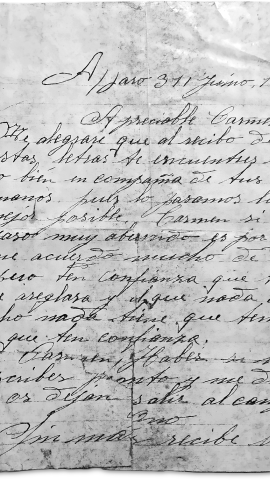 Alfaro 31 Junio, 1
Apreciable Carmen
Me alegrare que al recibo de
estas letras te encuentres
bien en compañia de tus
manos pues lo pasamos lo
posible. Carmen si
muy aburrido es por
me acuerdo mucho de
pero ten confianza que
areglara y que nada,
nada tiene que ten
que ten confianza.
Carmen Haber si
escribes pronto y me d
or dejan salir al cam
Sin mas recibe